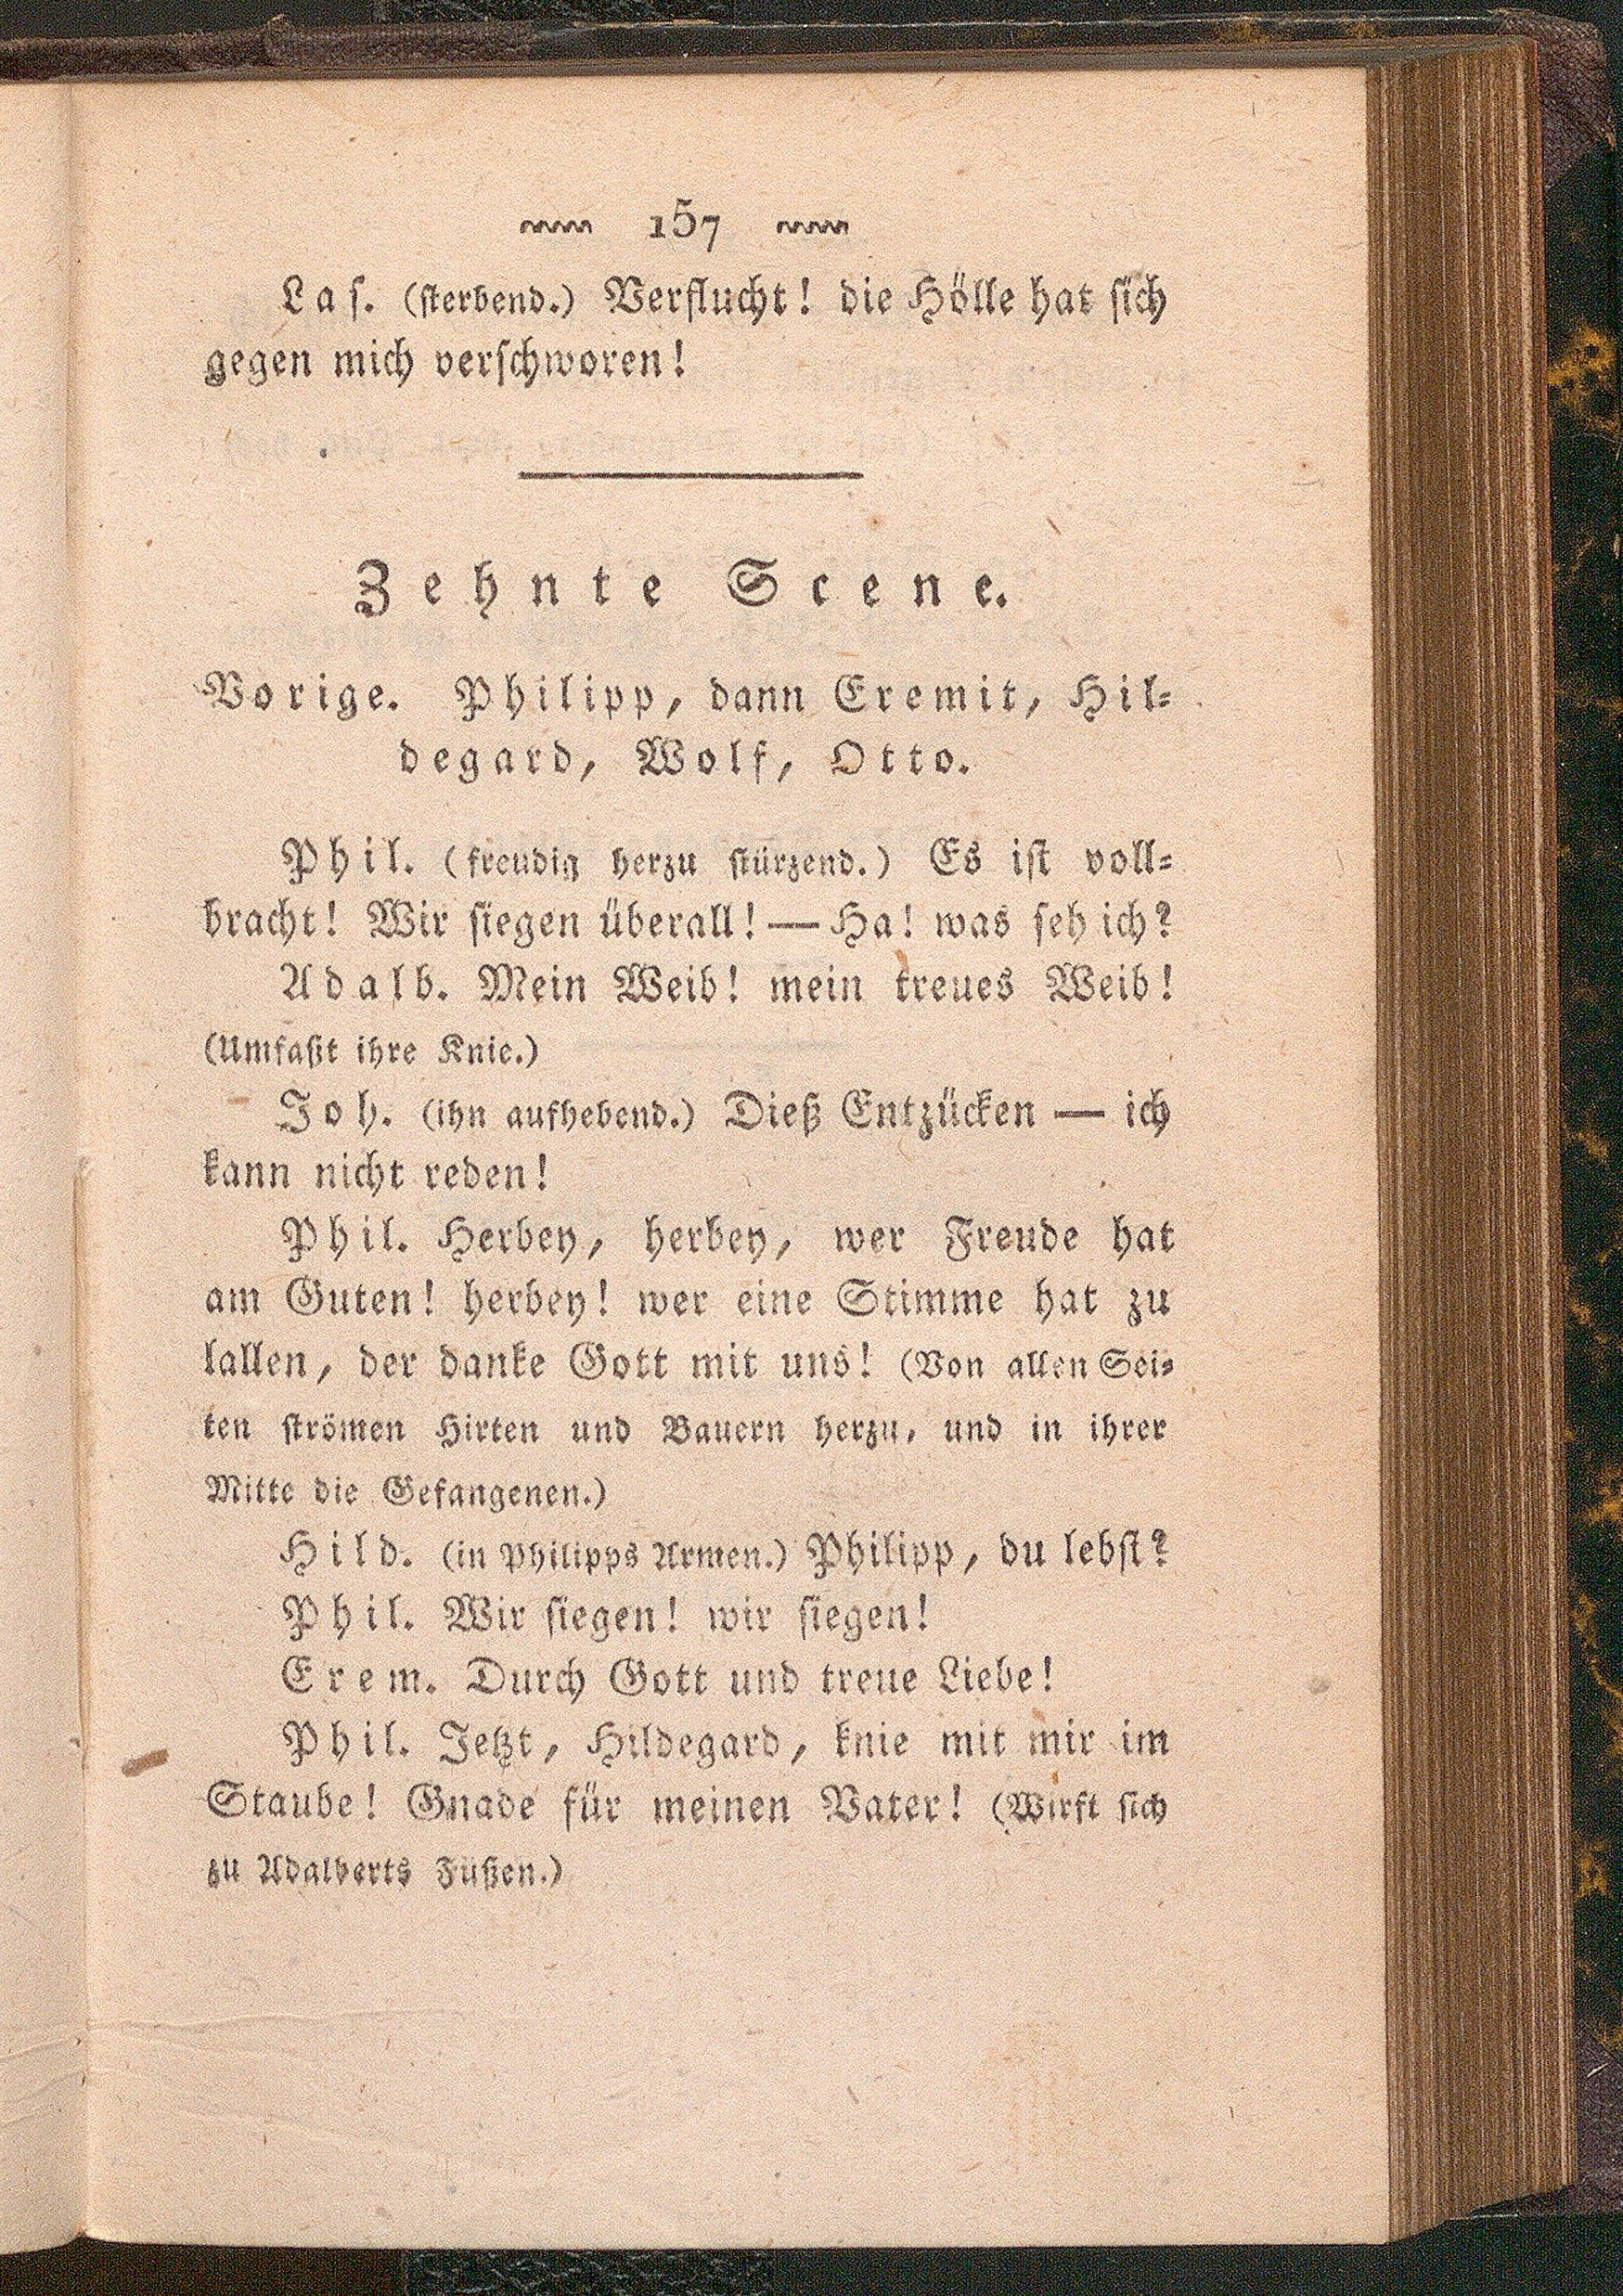 157
Laſ. (ſterbend.) Verflucht! die Hölle hat ſich
gegen mich verſchworen!
Zehnte Scene.
Vorige. Philipp, dann Eremit, Hil⸗
degard, Wolf, Otto.
Phil. (freudig herzu ſtürzend.) Es iſt voll⸗
bracht! Wir ſiegen überall! — Ha! was ſeh ich?
Adalb. Mein Weib! mein treues Weib!
(Umfaßt ihre Knie.)
Joh. (ihn aufhebend.) Dieß Entzücken — ich
kann nicht reden!
Phil. Herbey, herbey, wer Freude hat
am Guten! herbey! wer eine Stimme hat zu
lallen, der danke Gott mit uns! (Von allen Sei⸗
ten ſtrömen Hirten und Bauern herzu, und in ihrer
Mitte die Gefangenen.)
Hild. (in Philipps Armen.) Philipp, du lebſt?
Phil. Wir ſiegen! wir ſiegen!
Erem. Durch Gott und treue Liebe!
Phil. Jetzt, Hildegard, knie mit mir im
Staube! Gnade für meinen Vater! (Wirft ſich
zu Adalberts Füßen.)